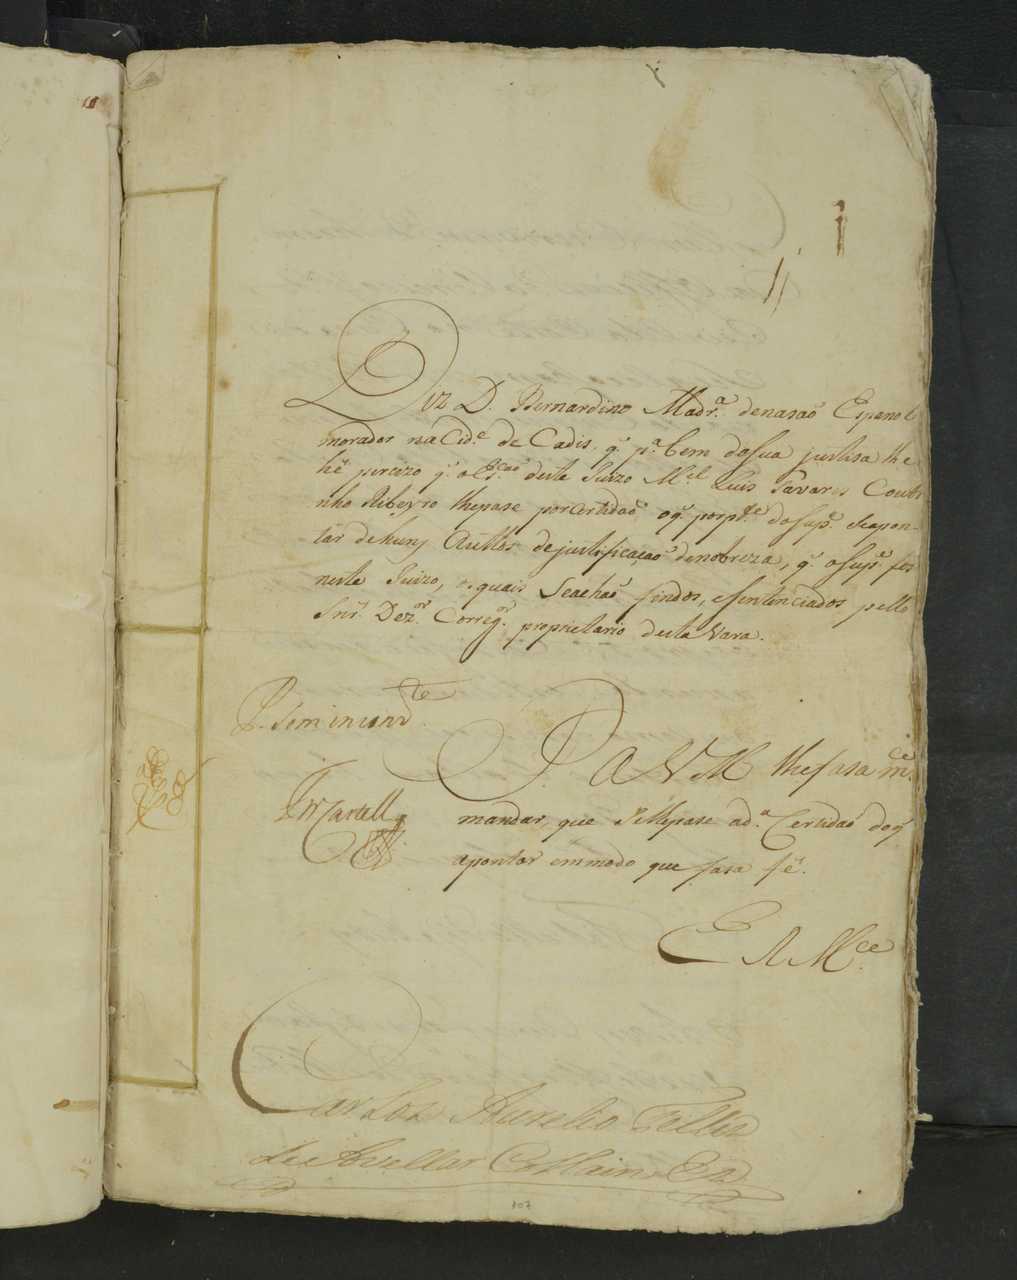 Diz D. Bernardino Madr.ª denasaõ Espanol
morador na Cid.e de Cadis, q. p.ª bem dosua justisa lhe
hê percizo q. o Es.cao deste Juizo M.el Luis Tavares Couti
nho Ribeyro lhepase porcertidaõ oq. porp.te dosup.e seapon-
tar dehuns Auttos dejustificaçaõ denobreza, q. osup.e fes
neste Juizo, os quais seachaõ findos, esentenciados pello
Snr. Dez.or Correg.or proprietario desta Vara.
P. A V M lhefasa m.ce
mandar, que sellepase ad.ª Certidaõ doq.
apontar emmodo que fasa fé.
E R M.ce
Carlos Aurelio Telles
107